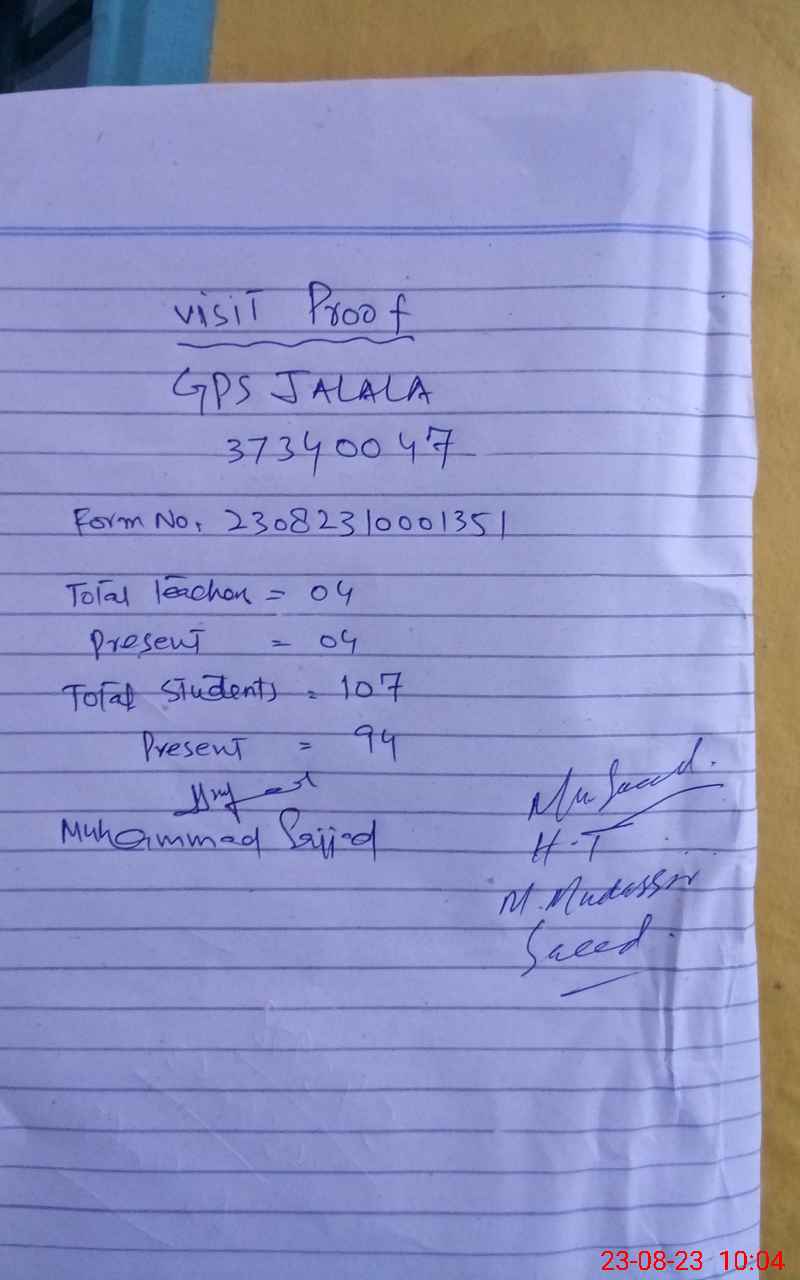 Visit Proof
GPS JALALA
37340047
Form No. 23082310001351
Total Teacher = 04
Present = 04
Total Students = 107
Present = 94
Muhammad Sajjad
Mu Saeed.
H.T
M. Mudassir
Saeed.
23-08-23 10:04